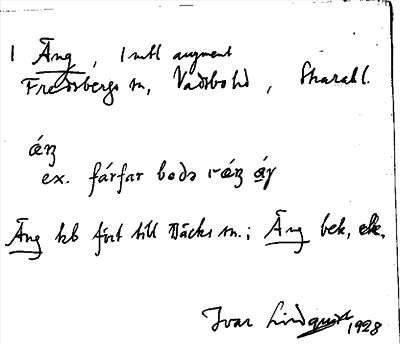 1 Äng, 1 mtl augment
Fredsbergs sn, Vadsbo hd, Skarab l.
ǽŋ
ex. fárfar bodə i ǽŋ
Äng hb fört till Bäcks sn.; Äng bek,
Ivar Lindquist 1928